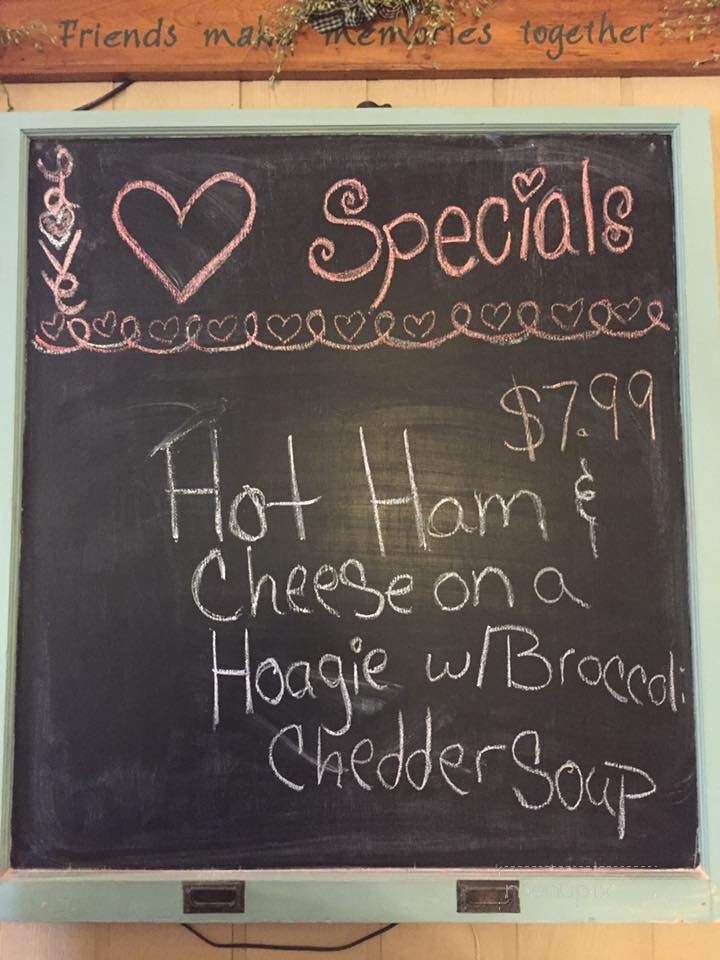 Friends make memories together
Specials
$7.99
Hot Ham &
Cheese on a
Hoagie w/Broccoli
Chedder Soup